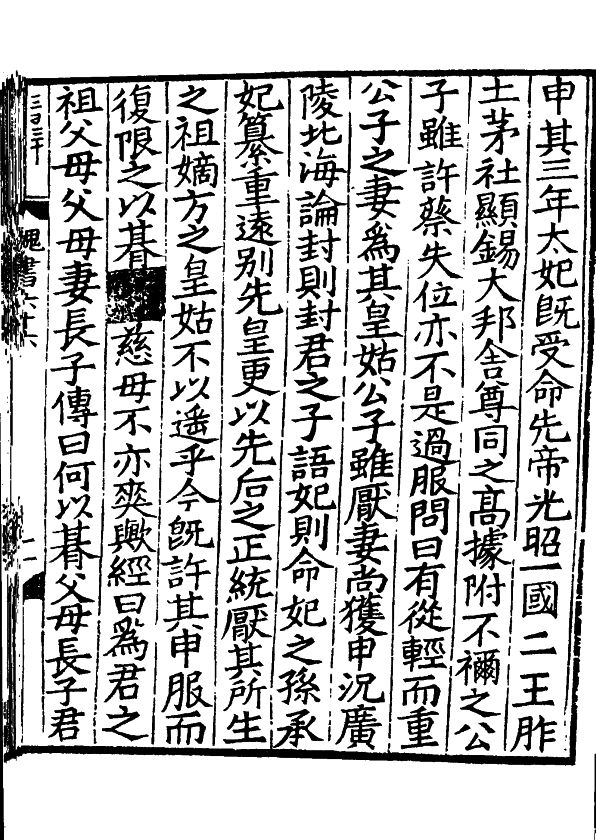 申其三年太妃旣受命先帝光昭一國二王胙
土茅社顯錫大邦舍尊同之高據附不禰之公
子雖許蔡失位亦不是過服問曰有從輕而重
公子之妻爲其皇姑公子雖厭妻尚獲申況廣
陵北海論封則封君之子語妃則命妃之孫承
妃纂重遠别先皇更以先后之正統厭其所生
之祖嫡方之皇姑不以遥乎今旣許其申服而
復限之以朞慈母不亦爽歟經曰爲君之
祖父母父母妻長子傳曰何以朞父母長子君
三百三十
魏書六十六